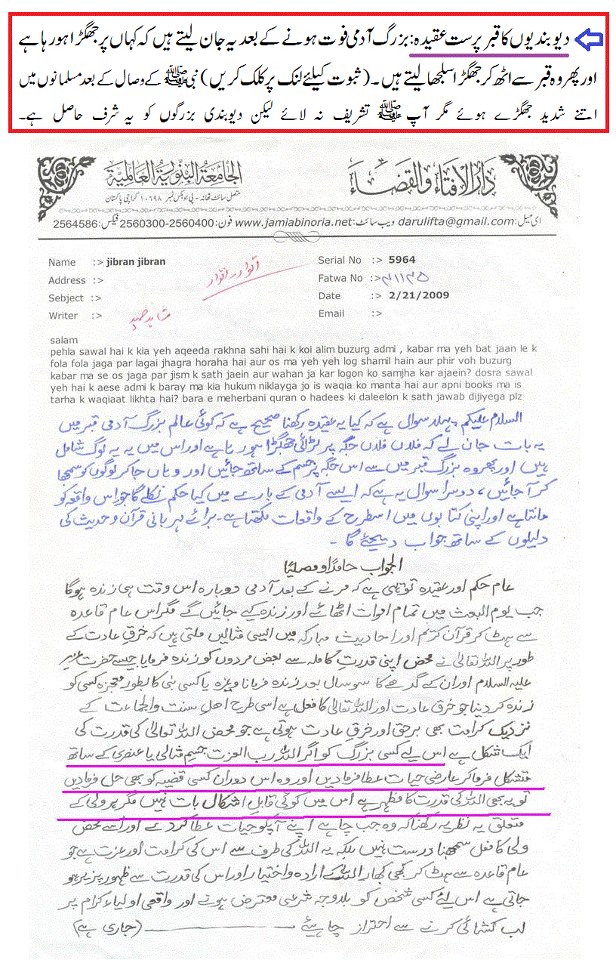 دیوبندیوں کا قبر پرست عقیدہ: بزرگ آدمی فوت ہونے کے بعد یہ جان لیتے ہیں کہ کہاں پر جھگڑا ہو رہا ہے
اور پھر وہ قبر سے اٹھ کر جھگڑا سلجھا لیتے ہیں۔ (ثبوت کیلئے لنک پر کلک کریں) نبی ﷺ کے وصال کے بعد مسلمانوں میں
اتنے شدید جھگڑے ہوئے مگر آپ ﷺ تشریف نہ لائے لیکن دیوبندی بزرگوں کو یہ شرف حاصل ہے۔
دارالافتاء والقضاء
الجامعة البنورية العالمية
متصل سائٹ تھانہ - پی او بکس نمبر ۱۰۶۹۸ کراچی پاکستان
ای میل: darulifta@gmail.com ویب سائٹ: www.jamiabinoria.net فون: 2560300-2560400 فیکس: 2564586
Name :> jibran jibran
Serial No :> 5964
Address :>
Fatwa No :> ۳۱۱۳۵
Sebject :>
Date :> 2/21/2009
Writer :>
Email :>
salam
pehla sawal hai k kia yeh aqeeda rakhna sahi hai k koi alim buzurg admi , kabar ma yeh bat jaan le k
fola fola jaga par lagai jhagra horaha hai aur os ma yeh yeh log shamil hain aur phir voh buzurg
kabar ma se os jaga par jism k sath jaein aur wahan ja kar logon ko samjha kar ajaein? dosra sawal
yeh hai k aese admi k baray ma kia hukum niklayga jo is waqia ko manta hai aur apni books ma is
tarha k waqiaat likhta hai? bara e meherbani quran o hadees ki daleelon k sath jawab dijiyega plz
السلام علیکم، پہلا سوال ہے کہ کیا یہ عقیدہ رکھنا صحیح ہے کہ کوئی عالم بزرگ آدمی قبر میں
یہ بات جان لے کہ فلاں فلاں جگہ پر لڑائی جھگڑا ہو رہا ہے اور اس میں یہ یہ لوگ شامل
ہیں اور پھر وہ بزرگ قبر میں سے اس جگہ پر جسم کے ساتھ جائیں اور وہاں جا کر لوگوں کو سمجھا
کر آجائیں، دوسرا سوال یہ ہے کہ ایسے آدمی کے بارے میں کیا حکم نکلے گا جو اس واقعہ کو
مانتا ہے اور اپنی کتابوں میں اسطرح کے واقعات لکھتا ہے۔ برائے مہربانی قرآن و حدیث کی
دلیلوں کے ساتھ جواب دیجئے گا -
الجواب حامداً ومصلیاً
عام حکم اور عقیدہ تو یہی ہے کہ مرنے کے بعد آدمی دوبارہ اس وقت ہی زندہ ہوگا
جب یوم البعث میں تمام اموات اٹھائے اور زندہ کئے جائیں گے مگر اس عام قاعدہ
سے ہٹ کر قرآن کریم اور احادیث مبارکہ میں ایسی مثالیں ملتی ہیں کہ خرق عادت کے
طور پر اللہ تعالیٰ نے محض اپنی قدرت کاملہ سے بعض مردوں کو زندہ فرمایا جیسے حضرت عزیر
علیہ السلام اور ان کے گدھے کا سو سال بعد زندہ فرمانا وغیرہ یا کسی نبی کا بطور معجزہ کسی کو
زندہ کر دینا جو خرق عادت اور اللہ تعالیٰ کا فعل ہے اسی طرح اہل سنت والجماعت کے
نزدیک کرامت بھی برحق اور خرق عادت ہوتی ہے جو محض اللہ تعالیٰ کی قدرت کی
ایک شکل ہے اس لیے کسی بزرگ کو اگر اللہ رب العزت جسم مثالی یا عنصری کے ساتھ
متشکل فرما کر عارضی حیات عطا فرما دیں اور وہ اس دوران کسی قضیہ کو بھی حل فرما دیں
تو یہ بھی اللہ کی قدرت کا مظہر ہے اس میں کوئی قابل اشکال بات نہیں مگر ہر ولی کے
متعلق یہ نظریہ رکھنا کہ وہ جب چاہے اپنے آپکو حیات عطا کر دے اور اسے محض
ولی کا فعل سمجھنا درست نہیں بلکہ یہ اللہ کی طرف سے اس کی کرامت اور عزت ہے جو
عام قاعدہ سے ہٹ کر کبھی کبھار اللہ کے ارادہ واختیار اور اس کی قدرت سے ظہور پزیر ہو
جاتی ہے اس لئے کسی شخص کو بلاوجہ شرعی معترض ہونے اور واقعی اولیاء کرام پر
لب کشائی کرنے سے احتراز چاہیئے (جاری ہے)